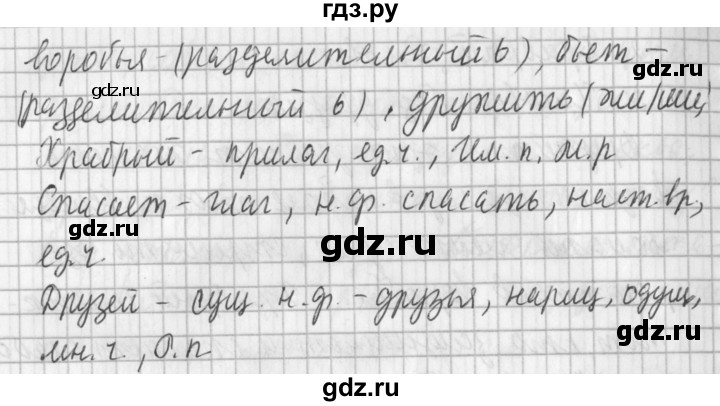 гдз.ру
воробья - (разделительный ь), бьет -
(разделительный ь), дружить (жи/ши)
Храбрый - прилаг, ед.ч., Им.п, м.р
Спасает - глаг, н.ф. спасать, наст.вр,
ед.ч.
Друзей - сущ. н.ф. - друзья, нариц, одущ,
мн.ч., О.п
gdz.ru
gdz.ru
gdz.ru
gdz.ru
gdz.ru
gdz.ru
gdz.ru
gdz.ru